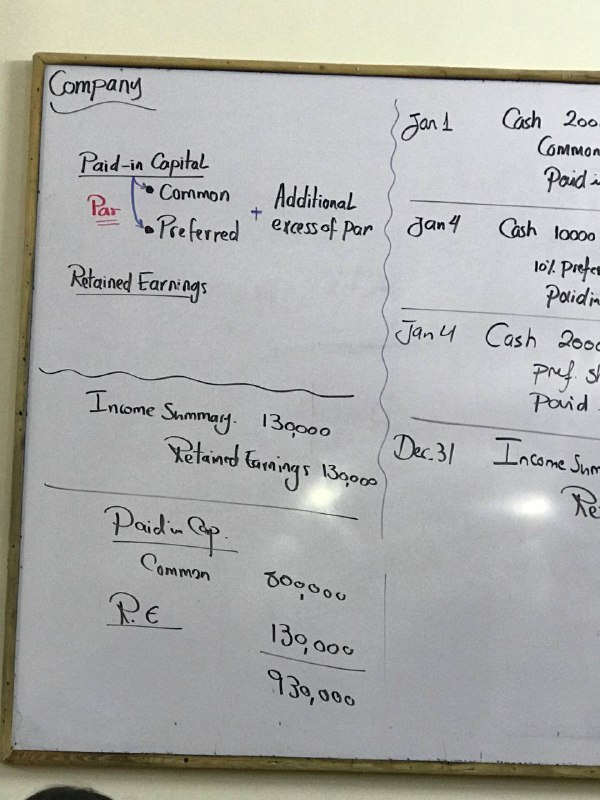 Company
Paid-in Capital
Par
• Common
• Preferred
+ Additional
excess of par
Retained Earnings
Income Summary. 130,000
Retained Earnings 130,000
Paid in Cap.
Common 800,000
R.E 130,000
930,000
Jan 1 Cash 200
Common
Paid i
Jan 4 Cash 10000
10% Prefe
Paid in
Jan 4 Cash 2000
Pref. sh
Paid
Dec. 31 Income Sum
Re